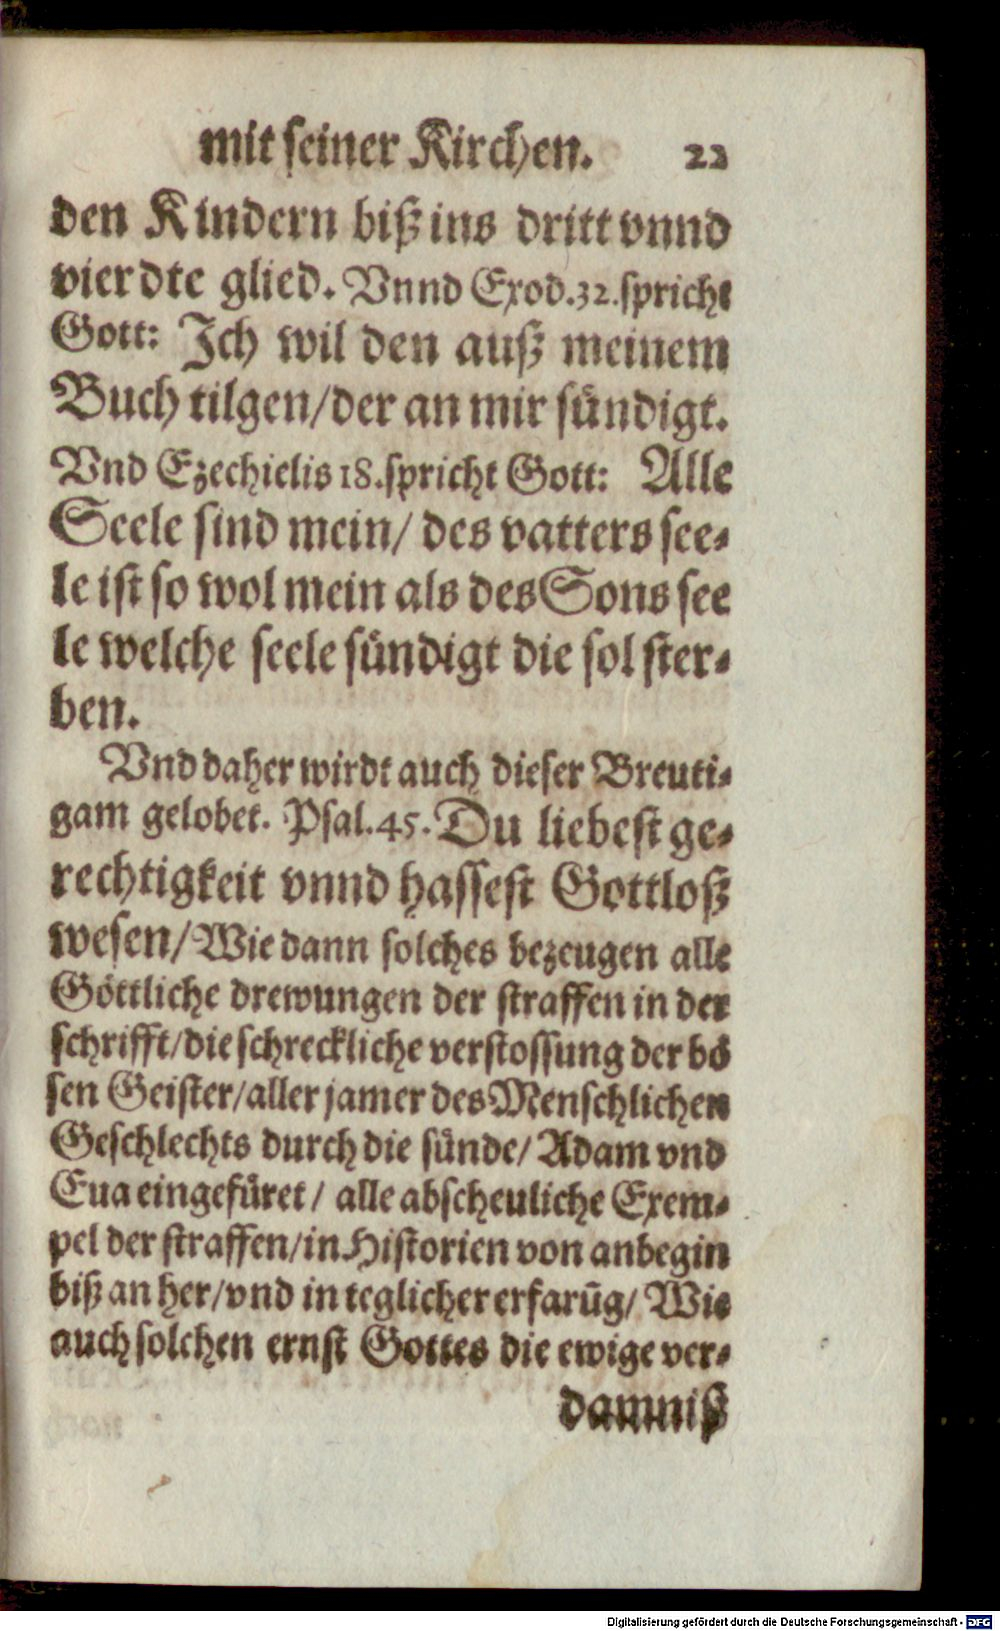 mit seiner Kirchen. 22
den Kindern biß ins dritt vnnd
vierdte glied. Vnnd Exod.32.spricht
Gott: Ich wil den auß meinem
Buch tilgen/der an mir sündigt.
Vnd Ezechielis 18.spricht Gott: Alle
Seele sind mein/ des vatters see-
le ist so wol mein als des Sons see
le welche seele sündigt die sol ster-
ben.
Vnd daher wirdt auch dieser Breuti-
gam gelobet. Psal.45. Du liebest ge-
rechtigkeit vnnd hassest Gottloß
wesen/ Wie dann solches bezeugen alle
Göttliche drewungen der straffen in der
schrifft/die schreckliche verstossung der bö
sen Geister/aller jamer des Menschlichen
Geschlechts durch die sünde/ Adam vnd
Eua eingefüret/ alle abscheuliche Exem-
pel der straffen/in Historien von anbegin
biß an her/vnd in teglicher erfarūg/ Wie
auch solchen ernst Gottes die ewige ver-
damniß
Digitalisierung gefördert durch die Deutsche Forschungsgemeinschaft - DFG